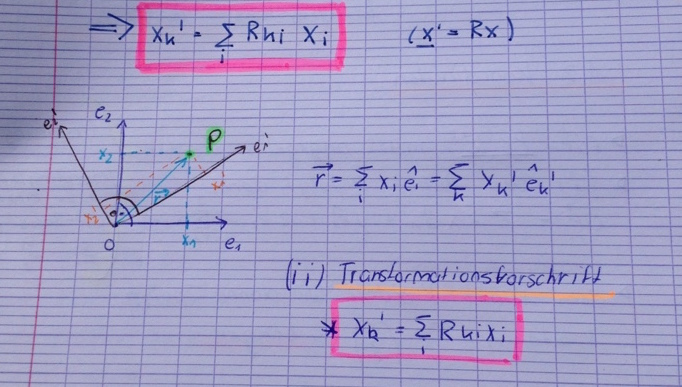 ⇒ Xk' = Σi Rki Xi (x' = Rx)
e2
e2'
P
e1'
x2
x1'
r⃗
x2'
O
x1
e1
r⃗ = Σi xi êi = Σk Xk' êk'
(ii) Transformationsvorschrift
* Xk' = Σi Rki xi